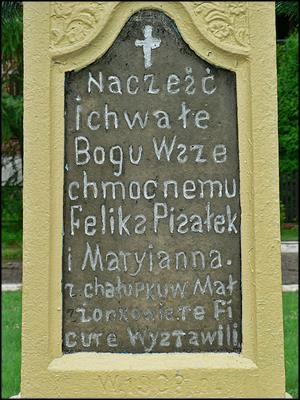 Naczeżć
ichwałe
Bogu Wsze
chmocnemu
Feliks Piżałek
i Maryianna.
z chałupkuw Mał
zonkowie te Fi
gure Wyztawili